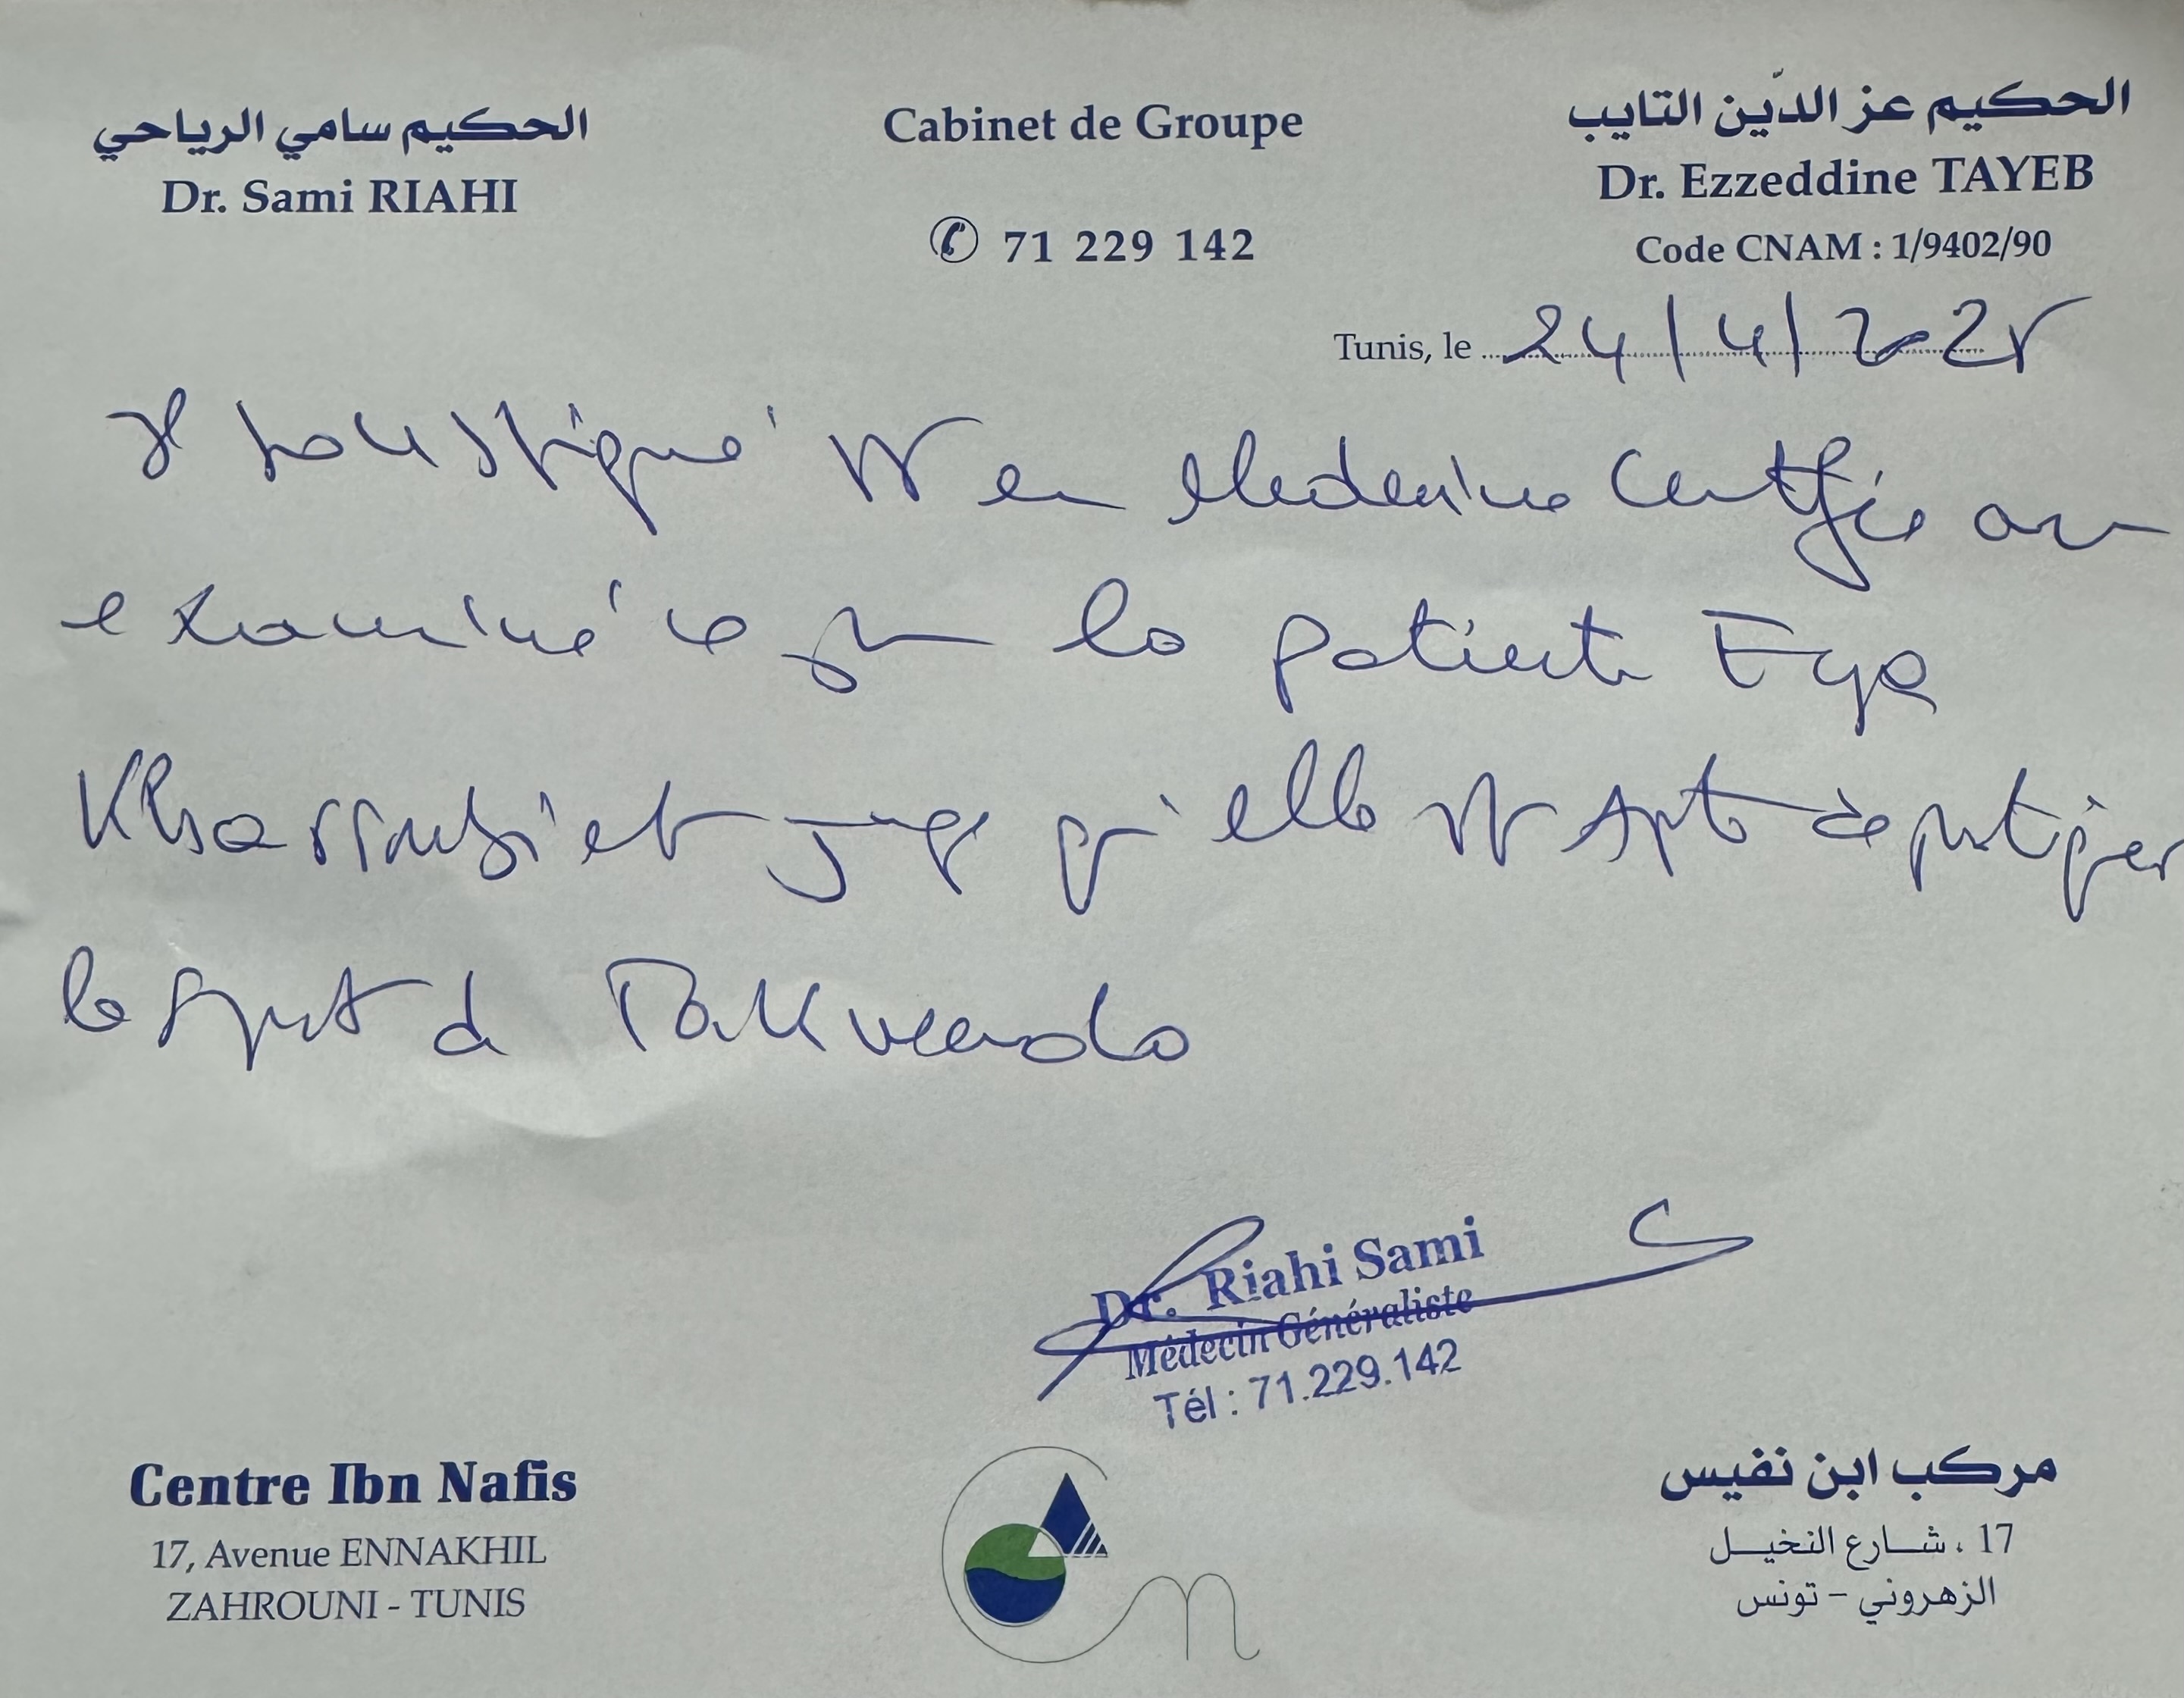 الحكيم سامي الرياحي
Dr. Sami RIAHI
Cabinet de Groupe
✆ 71 229 142
الحكيم عز الدّين التايب
Dr. Ezzeddine TAYEB
Code CNAM : 1/9402/90
Tunis, le 24/4/2025
Je soussigné Dr en Medecine Certifie avoir
examiné ce jour la patiente Eya
et juge qu'elle est Apte à pratiquer
le sport de Taekwendo
Dr. Riahi Sami
Médecin Généraliste
Tél : 71.229.142
Centre Ibn Nafis
17, Avenue ENNAKHIL
ZAHROUNI - TUNIS
مركب ابن نفيس
17 ، شارع النخيل
الزهروني - تونس